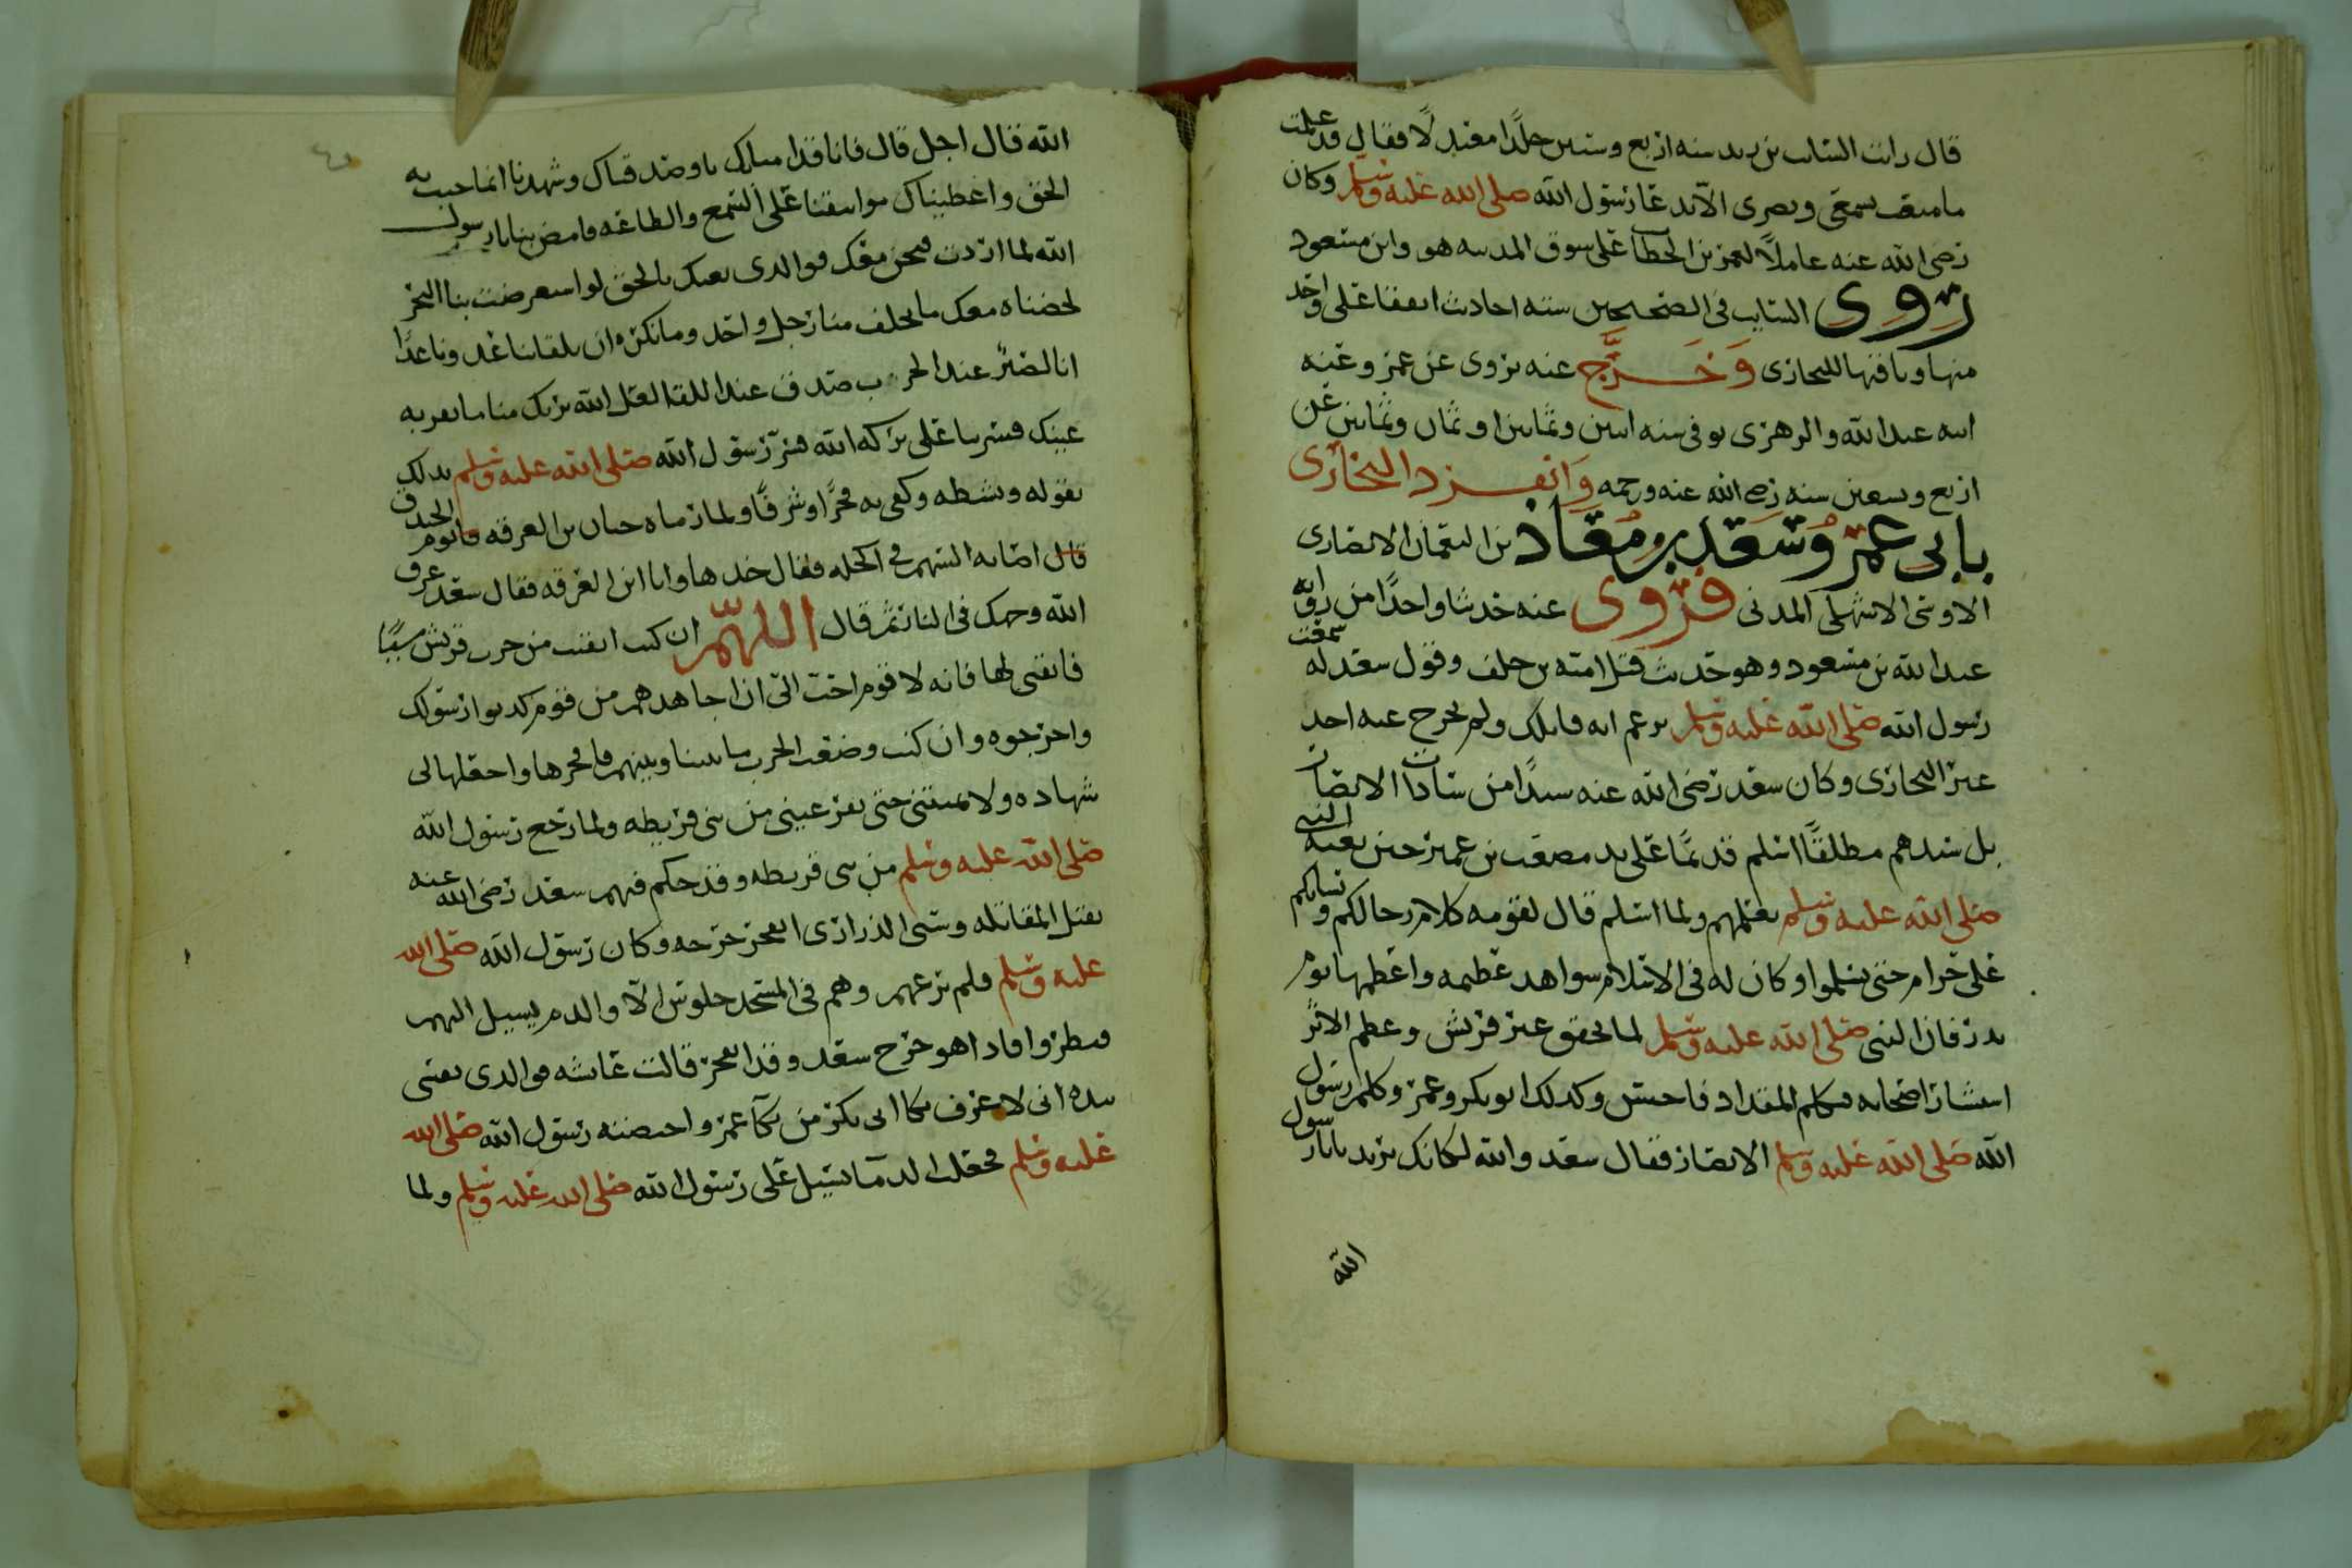 قال رات السايب بن يزيد سنه اربع وستين جلدًا معتدلًا فقال قد علمت
ما متعت بسمعي وبصري الا بدعا رسول الله صلى الله عليه وسلم وكان
رضي الله عنه عاملاً لعمر بن الخطاب على سوق المدينه هو وابن مسعود
روى السايب في الصحيحين ستة احاديث اتفقا على واحد
منها وباقيها للبخاري وخرج عنه يروى عن عمر وعنه
ابنه عبد الله والزهري توفي سنه اثنين وثمانين او ثمان وثمانين عن
اربع وتسعين سنه رضي الله عنه ورحمه وانفرد البخاري
بابي عمرو سعد بن معاذ بن النعمان الانصاري
الاوسي الاشهلي المدني فروى عنه حديثا واحدًا من رواية
عبد الله بن مسعود وهو حديث قتل امية بن خلف وقول سعد له سمعت
رسول الله صلى الله عليه وسلم يزعم انه قاتلك ولم يخرج عنه احد
غير البخاري وكان سعد رضي الله عنه سيدًا من سادات الانصار
بل سيدهم مطلقًا اسلم قديمًا على يد مصعب بن عمير حين بعثه النبي
صلى الله عليه وسلم يعلمهم ولما اسلم قال لقومه كلام رجالكم ونسايكم
علي حرام حتى تسلموا وكان له في الاسلام شواهد عظيمه واعظمها يوم
بدر فان النبي صلى الله عليه وسلم لما تحقق عير قريش وعظم الامر
استشار اصحابه فتكلم المقداد فاحسن وكذلك ابو بكر وعمر وكلهم رسول
الله صلى الله عليه وسلم الانصار فقال سعد والله لكانك تريد يا رسول
الله
الله قال اجل قال فانا قد امنا بك يا وصدقناك وشهدنا انما جيت به
الحق واعطيناك مواثيقنا على السمع والطاعه فامض بنا يا رسول
الله لما اردت فنحن معك فوالذي بعثك بالحق لو استعرضت بنا البحر
لخضناه معك ما يتخلف منا رجل واحد وما نكره ان تلقا بنا عدونا غدًا
انا لصبر عند الحرب صدق عند اللقا لعل الله يريك منا ما تقر به
عينك فسر بنا على بركه الله فسر رسول الله صلى الله عليه وسلم بذلك
بقوله ونشطه وكفى به فخرًا وشرفًا ولما رماه حبان بن العرقه يوم الخندق
قال اصابه السهم في اكحله فقال خذها وانا ابن العرقه فقال سعد عرق
الله وجهك في النار ثم قال اللهم ان كنت ابقيت من حرب قريش شيئًا
فابقني لها فانه لا قوم احب الي ان اجاهدهم من قوم كذبوا رسولك
واخرجوه وان كنت وضعت الحرب بيننا وبينهم فافجرها واجعلها لي
شهاده ولا تميتني حتى تقر عيني من بني قريظه ولما رجع رسول الله
صلى الله عليه وسلم من بني قريظه وقد حكم فيهم سعد رضي الله عنه
بقتل المقاتله وسبي الذراري انفجر جرحه وكان رسول الله صلى الله
عليه وسلم فلم يرعهم وهم في المسجد جلوس الا والدم يسيل اليهم
فنظروا فاذا هو جرح سعد وقد انفجر قالت عايشه فوالذي نفسي
بيده اني لاعرف بكا ابي بكر من بكا عمر واحتضنه رسول الله صلى الله
عليه وسلم فجعل الدم يسيل على رسول الله صلى الله عليه وسلم ولما